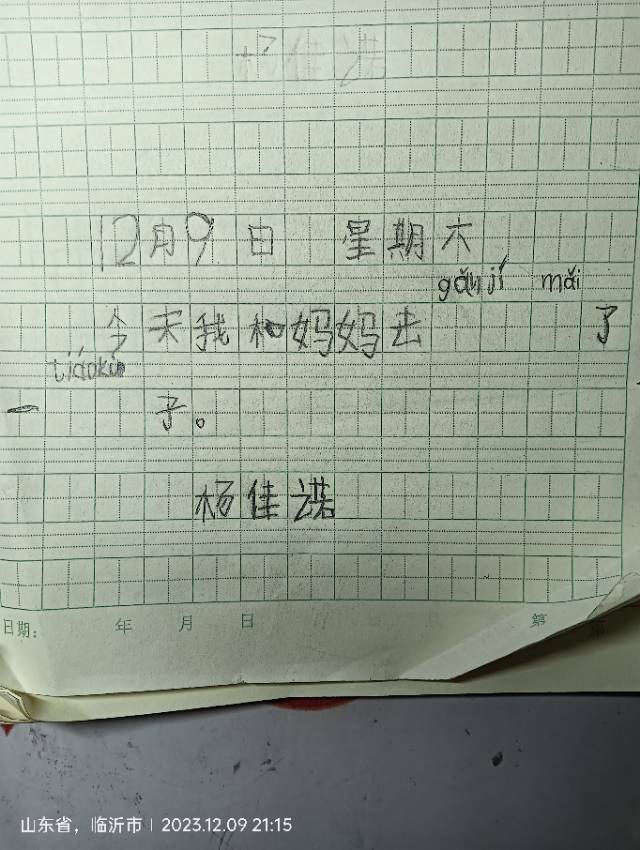 杨佳诺
12月9日 星期六
gǎn jí mǎi
今天我和妈妈去 了
tiáo kù
一 子。
杨佳诺
日期: 年 月 日 第
山东省，临沂市 | 2023.12.09 21:15